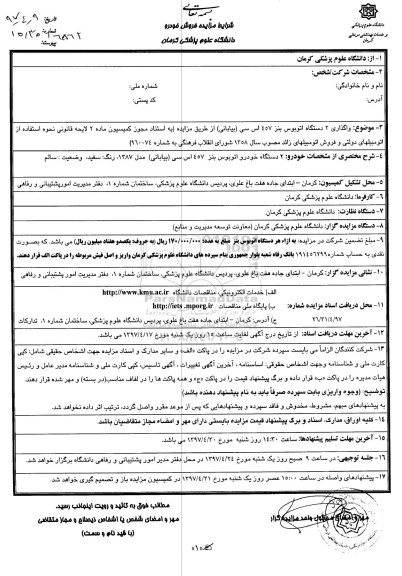 بسمه تعالی
شرایط مزایده فروش خودرو
دانشگاه علوم پزشکی کرمان
دانشگاه علوم پزشکی
و خدمات بهداشتی درمانی
کرمان
تاریخ ۹۷/۴/۹
پیوست
۱- از: دانشگاه علوم پزشکی کرمان
۲- مشخصات شرکت/شخص:
نام و نام خانوادگی: شماره ملی:
آدرس: کد پستی:
۳- موضوع: واگذاری ۲ دستگاه اتوبوس بنز ۴۵۷ اس سی (بیابانی) از طریق مزایده (به استناد مجوز کمیسیون ماده ۲ لایحه قانونی نحوه استفاده از
اتومبیلهای دولتی و فروش اتومبیلهای زائد مصوب سال ۱۳۵۸ شورای انقلاب فرهنگی به شماره ۹۶۰۰۷۴)
۴- شرح مختصری از مشخصات خودرو: ۲ دستگاه خودرو اتوبوس بنز ۴۵۷ اس سی (بیابانی) مدل ۱۳۸۷، رنگ: سفید، وضعیت: سالم
۵- محل تشکیل کمیسیون: کرمان – ابتدای جاده هفت باغ علوی، پردیس دانشگاه علوم پزشکی، ساختمان شماره ۱، دفتر مدیریت امور پشتیبانی و رفاهی
۶- کارفرما: دانشگاه علوم پزشکی کرمان
۷- دستگاه نظارت: دانشگاه علوم پزشکی کرمان
۸- دستگاه مزایده گزار: دانشگاه علوم پزشکی کرمان (معاونت توسعه مدیریت و منابع)
۹- مبلغ تضمین شرکت در مزایده: به ازاء هر دستگاه اتوبوس بنز مبلغ به عدد: ۱۷۰/۰۰۰/۰۰۰ ریال (به حروف: یکصد و هفتاد میلیون ریال) می باشد. که بصورت
نقدی به حساب شماره ۱۹۱۴۵۶۲۹۱ بانک رفاه شعبه بلوار جمهوری بنام سپرده های دانشگاه علوم پزشکی کرمان واریز و اصل فیش مربوطه را در پاکت الف قرار دهند.
۱۰- نشانی مزایده گزار: کرمان – ابتدای جاده هفت باغ علوی، پردیس دانشگاه علوم پزشکی، ساختمان شماره ۱، دفتر مدیریت امور پشتیبانی و رفاهی
الف) خدمات الکترونیکی، مناقصات دانشگاه http://www.kmu.ac.ir
۱۱- محل دریافت اسناد مزایده شماره: ب) پایگاه ملی مناقصات http://iets.mporg.ir
۲۶/۲۱/۸/۹۷ ج) آدرس: کرمان – ابتدای جاده هفت باغ علوی، پردیس دانشگاه علوم پزشکی، ساختمان شماره ۱، تدارکات
۱۲- آخرین مهلت دریافت اسناد: از تاریخ درج آگهی لغایت ساعت ۱۴ روز یک شنبه مورخ ۱۳۹۷/۴/۱۷ می باشد.
۱۳- شرکت کنندگان الزاماً می بایست سپرده شرکت در مزایده را در پاکت «الف» و سایر مدارک و اسناد مزایده جهت اشخاص حقیقی شامل: کپی
کارت ملی و شناسنامه وجهت اشخاص حقوقی: اساسنامه ، آخرین آگهی تغییرات ، آگهی تاسیس، کپی کارت ملی و شناسنامه مدیر عامل و رئیس
هیات مدیره را در پاکت «ب» قرار داده و برگ پیشنهاد قیمت را در پاکت «ج» و همه پاکت ها را در لفاف مناسب(در بسته) و مهر شده قرار دهند.
توضیح: (وجوه واریزی بابت سپرده صرفاً باید به نام پیشنهاد دهنده باشد)
به پیشنهادهای مبهم، مشروط، مخدوش و فاقد سپرده و پیشنهادهایی که پس از موعد مقرر واصل گردد، ترتیب اثر داده نخواهد شد.
۱۴- کلیه اوراق، مدارک، اسناد و برگ پیشنهاد قیمت مزایده بایستی دارای مهر و امضاء مجاز متقاضیان باشد.
۱۵- آخرین مهلت تسلیم پیشنهادها: ساعت ۱۴:۳۰ روز شنبه مورخ ۱۳۹۷/۴/۳۰ می باشد.
۱۶- جلسه توجیهی: در ساعت ۹ صبح روز یک شنبه مورخ ۱۳۹۷/۴/۲۴ در محل دفتر مدیر امور پشتیبانی و رفاهی دانشگاه برگزار خواهد شد.
۱۷- پیشنهادهای واصله در ساعت ۱۵:۰۰ عصر روز یک شنبه مورخ ۱۳۹۷/۴/۳۱ در کمیسیون مزایده باز و تصمیم گیری خواهد شد.
مطالب فوق به تائید و رویت اینجانب رسید.
مهر و امضای شخص یا اشخاص ذیصلاح و مجاز متقاضی
(با قید نام و سمت)
مهر و امضای مسئول واحد مزایده گزار